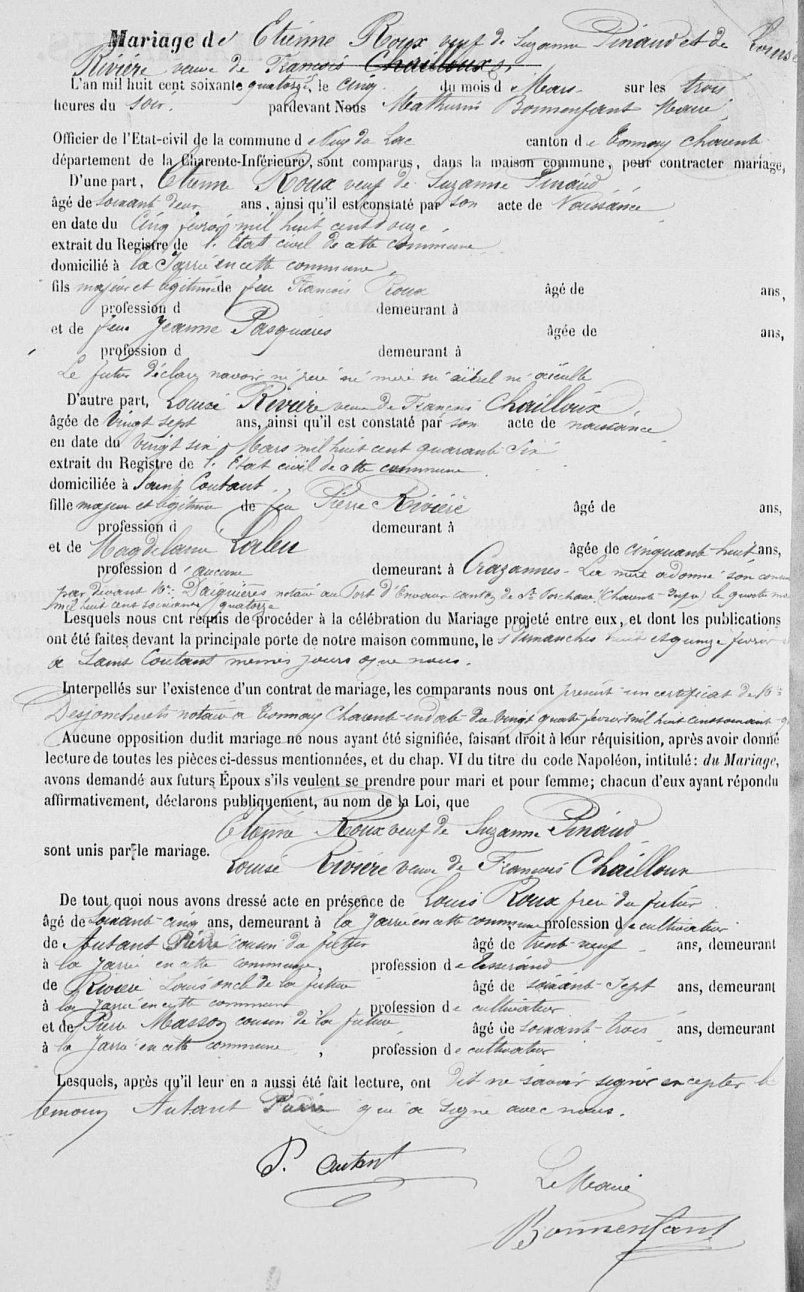 Mariage de Etienne Roux veuf de Suzanne Pinaud et de Louise
Rivière veuve de François Chailloux
L'an mil huit cent soixante quatorze, le cinq du mois de Mars sur les trois
heures du soir, pardevant Nous Mathurin Bonnenfant Maire
Officier de l'Etat-civil de la commune d canton de Tonnay Charente
département de la Charente-Inférieure, sont comparus, dans la maison commune, pour contracter mariage,
D'une part, Etienne Roux veuf de Suzanne Pinaud
âgé de soixant deux ans, ainsi qu'il est constaté par son acte de Naissance
en date du Cinq février mil huit cent douze
extrait du Registre de l'Etat civil de cette commune
domicilié à la Jarrie en cette commune
fils majeur et légitime de feu François Roux âgé de ans,
profession d demeurant à
et de feue Jeanne Pasquières âgée de ans,
profession d demeurant à
Le futur déclare n'avoir ni père ni mère ni aïeul ni aïeulle
D'autre part, Louise Rivière veuve de François Chailloux
âgée de Vingt sept ans, ainsi qu'il est constaté par son acte de naissance
en date du vingt six Mars mil huit cent quarante six
extrait du Registre de l'Etat civil de cette commune
domiciliée à Saint Coutant
fille majeur et légitime de feu Pierre Rivière âgé de ans,
profession d demeurant à
et de Magdelaine âgée de cinquant-huit ans,
profession d'aucune demeurant à Crazannes - La mère a donné son consen
par devant Me Daiguières notaire au Port d'Envaux canton de St Porchaire (Charente-Infre) le quatre mars
mil huit cent soixante quatorze
Lesquels nous ont requis de procéder à la célébration du Mariage projeté entre eux, et dont les publications
ont été faites devant la principale porte de notre maison commune, les Dimanches huit et quinze février et
de Saint Coutant mêmes jours que nous.
Interpellés sur l'existence d'un contrat de mariage, les comparants nous ont produit un certificat de Me
Desjoncherets notaire à Tonnay Charente en date du vingt quatre février mil huit cent soixant-q
Aucune opposition dudit mariage ne nous ayant été signifiée, faisant droit à leur réquisition, après avoir donné
lecture de toutes les pièces ci-dessus mentionnées, et du chap. VI du titre du code Napoléon, intitulé : du Mariage,
avons demandé aux futurs Époux s'ils veulent se prendre pour mari et pour femme ; chacun d'eux ayant répondu
affirmativement, déclarons publiquement, au nom de la Loi, que
Etienne Roux veuf de Suzanne Pinaud
sont unis par le mariage.
Louise Rivière veuve de François Chailloux
De tout quoi nous avons dressé acte en présence de Louis Roux frère du futur
âgé de soixant-cinq ans, demeurant à la Jarrie en cette commune profession de cultivateur
de Autant Pierre cousin du futur âgé de trent neuf ans, demeurant
à la Jarrie en cette commune, profession de tisserand
de Rivière Louis oncle de la future âgé de soixant-sept ans, demeurant
à la Jarrie en cette commune profession de cultivateur
et de Pierre Masson cousin de la future âgé de soixant-trois ans, demeurant
à la Jarrie en cette commune, profession de cultivateur
Lesquels, après qu'il leur en a aussi été fait lecture, ont dit ne savoir signer excepter le
témoin Autant Pierre qui a signé avec nous.
P. Autant
Le Maire
Bonnenfant